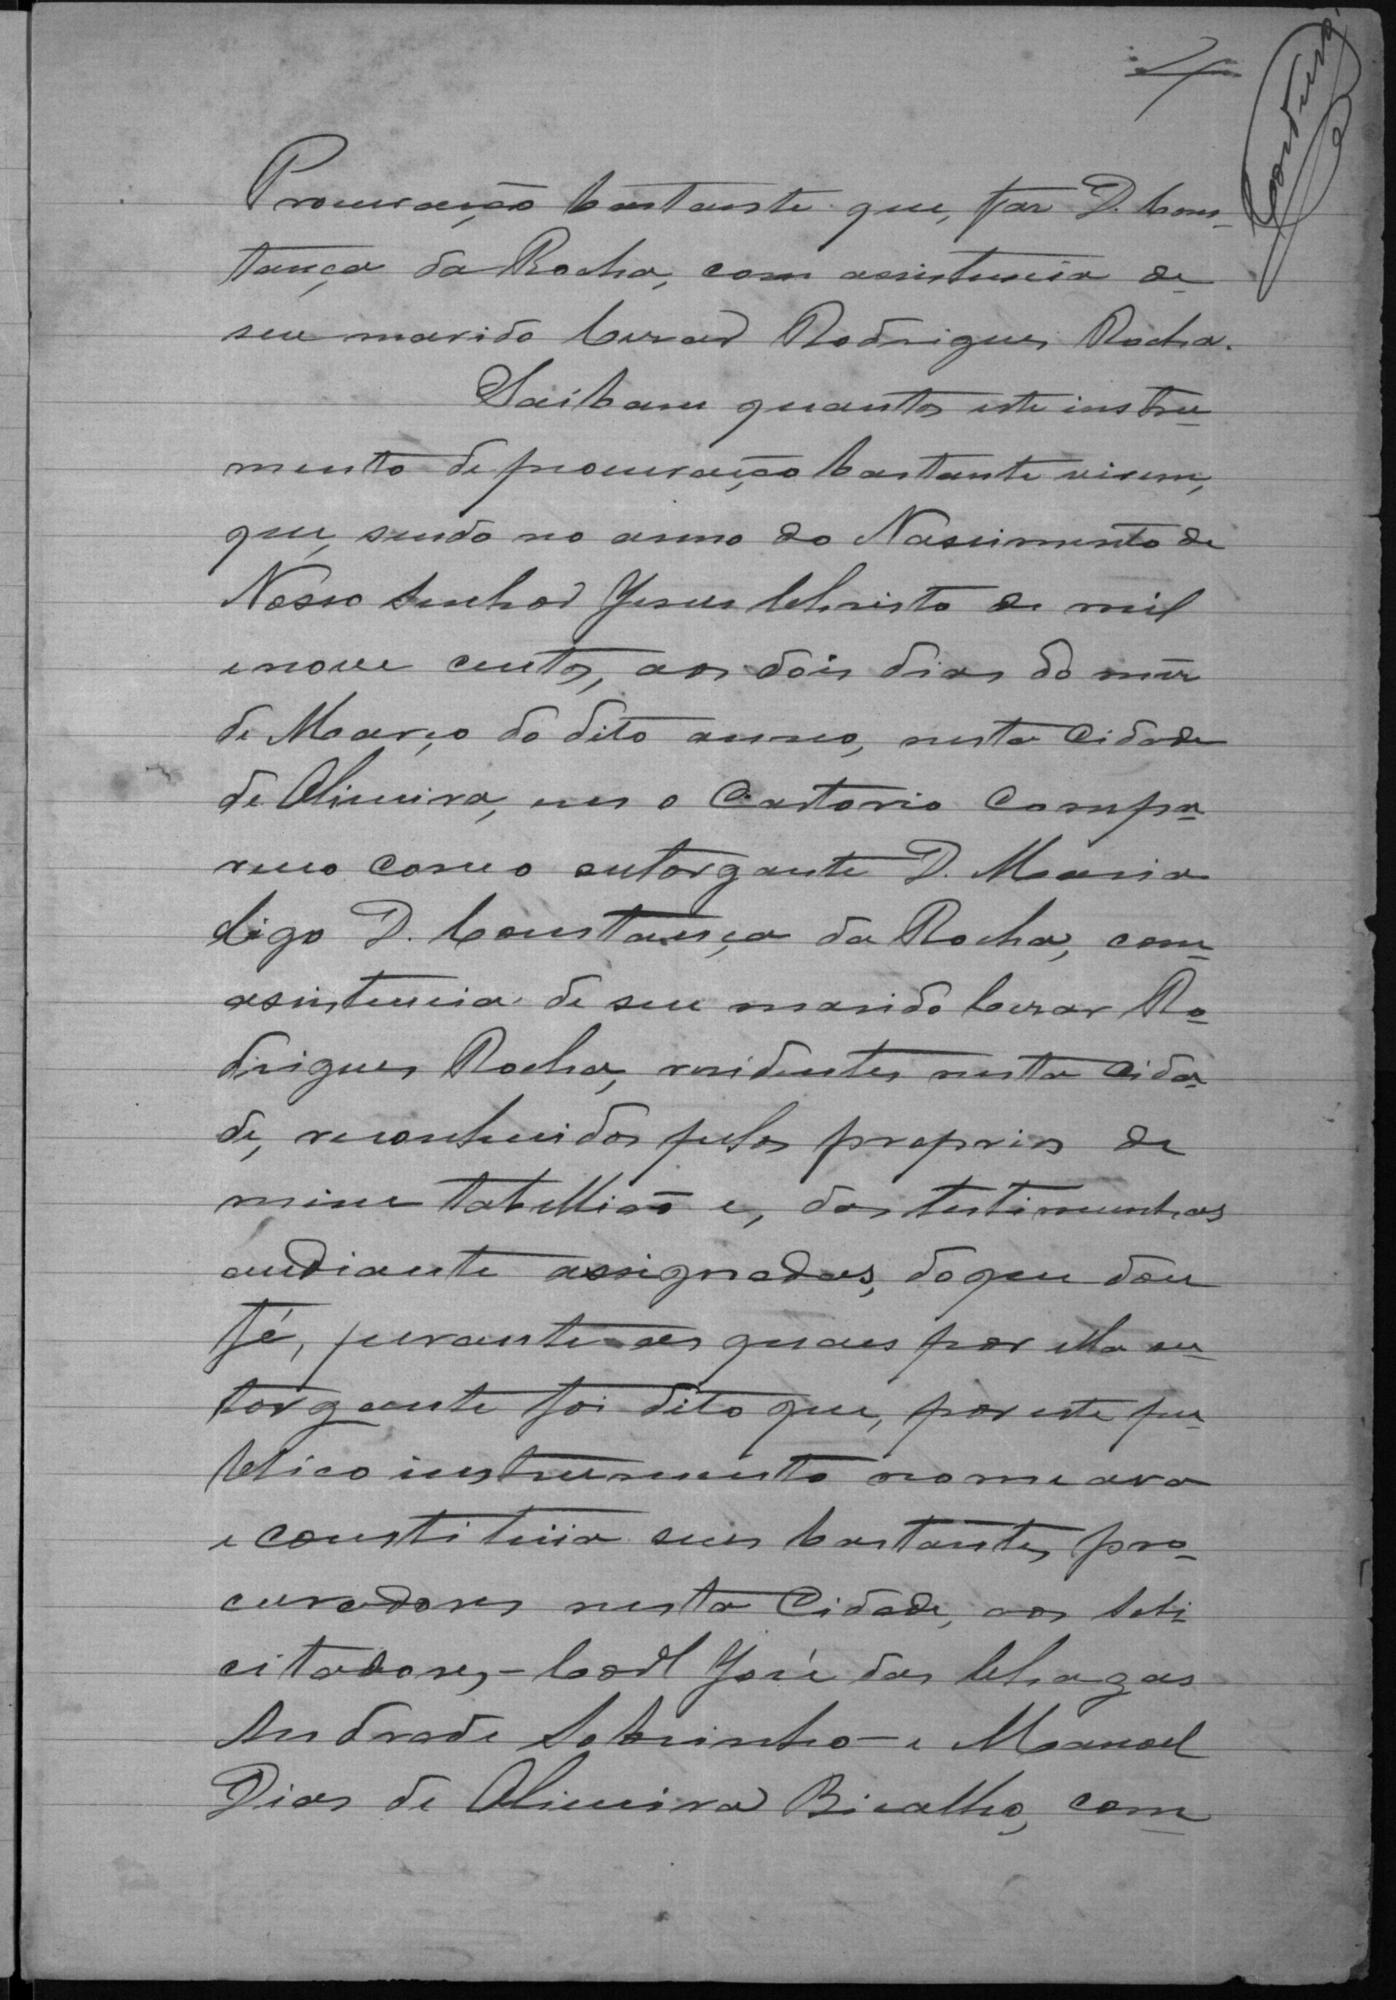 4
Cordeiro
Procuração bastante que, faz D. Cons-
tança da Rocha, com assistencia de
seu marido Cezar Rodrigues Rocha.
Saibam quantos este instru-
mento de procuração bastante virem,
que, sendo no anno do Nascimento de
Nosso Senhor Jesus Christo de mil
e nove centos, aos dois dias do mez
de Março do dito anno, nesta Cidade
de Oliveira, em o Cartorio Compa-
receo como outorgante D. Maria
digo D. Constança da Rocha, com
assistencia de seu marido Cezar Ro-
drigues Rocha, residentes nesta Cida-
de, reconhecidos pelos proprios de
mim tabellião e, das testimunhas
andiante assignadas, do que dou
fé, perante as quaes por ella ou-
torgante foi dito que, por este pu-
blico instrumento nomeava
e constituia seus bastantes, pro-
curadores nesta Cidade, aos Soli-
citadores,- José das Chagas
Andrade Sobrinho- e Manoel
Dias de Oliveira Bicalho, com